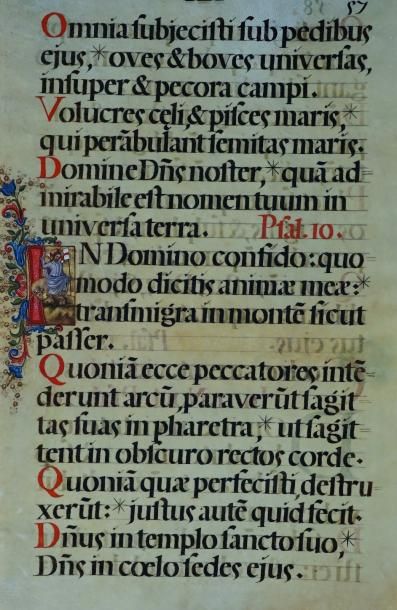 57
Omnia subjecisti sub pedibus
ejus,* oves & boves universas,
insuper & pecora campi.
Volucres cęli, & pisces maris,*
qui perābulant semitas maris.
Domine Dn̄s noster,* quā ad
mirabile est nomen tuum in
universa terra. Psal. 10.
IN Domino confido: quo
modo dicitis animæ meæ:*
transmigra in montē sicut
passer.
Quoniā ecce peccatores intē
derunt arcū, paraverūt sagit
tas suas in pharetra,* ut sagit
tent in obscuro rectos corde.
Quoniā quæ perfecisti, destru
xerūt:* justus autē quid fecit.
Dn̄us in templo sancto suo,*
Dn̄s in cœlo sedes ejus.